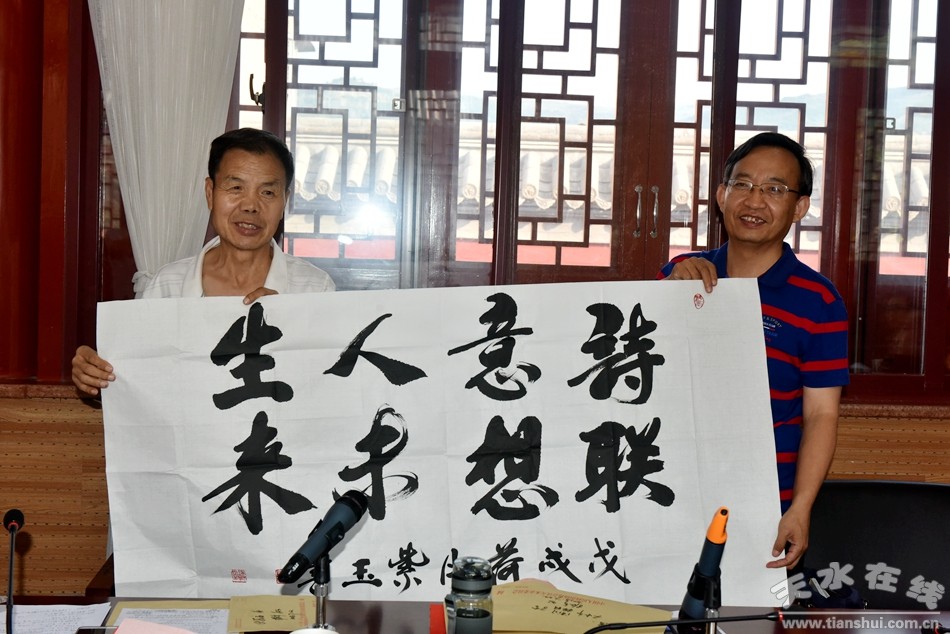 詩意人生
联想未来
戊戌荷月紫玉
天水在线
www.tianshui.com.cn